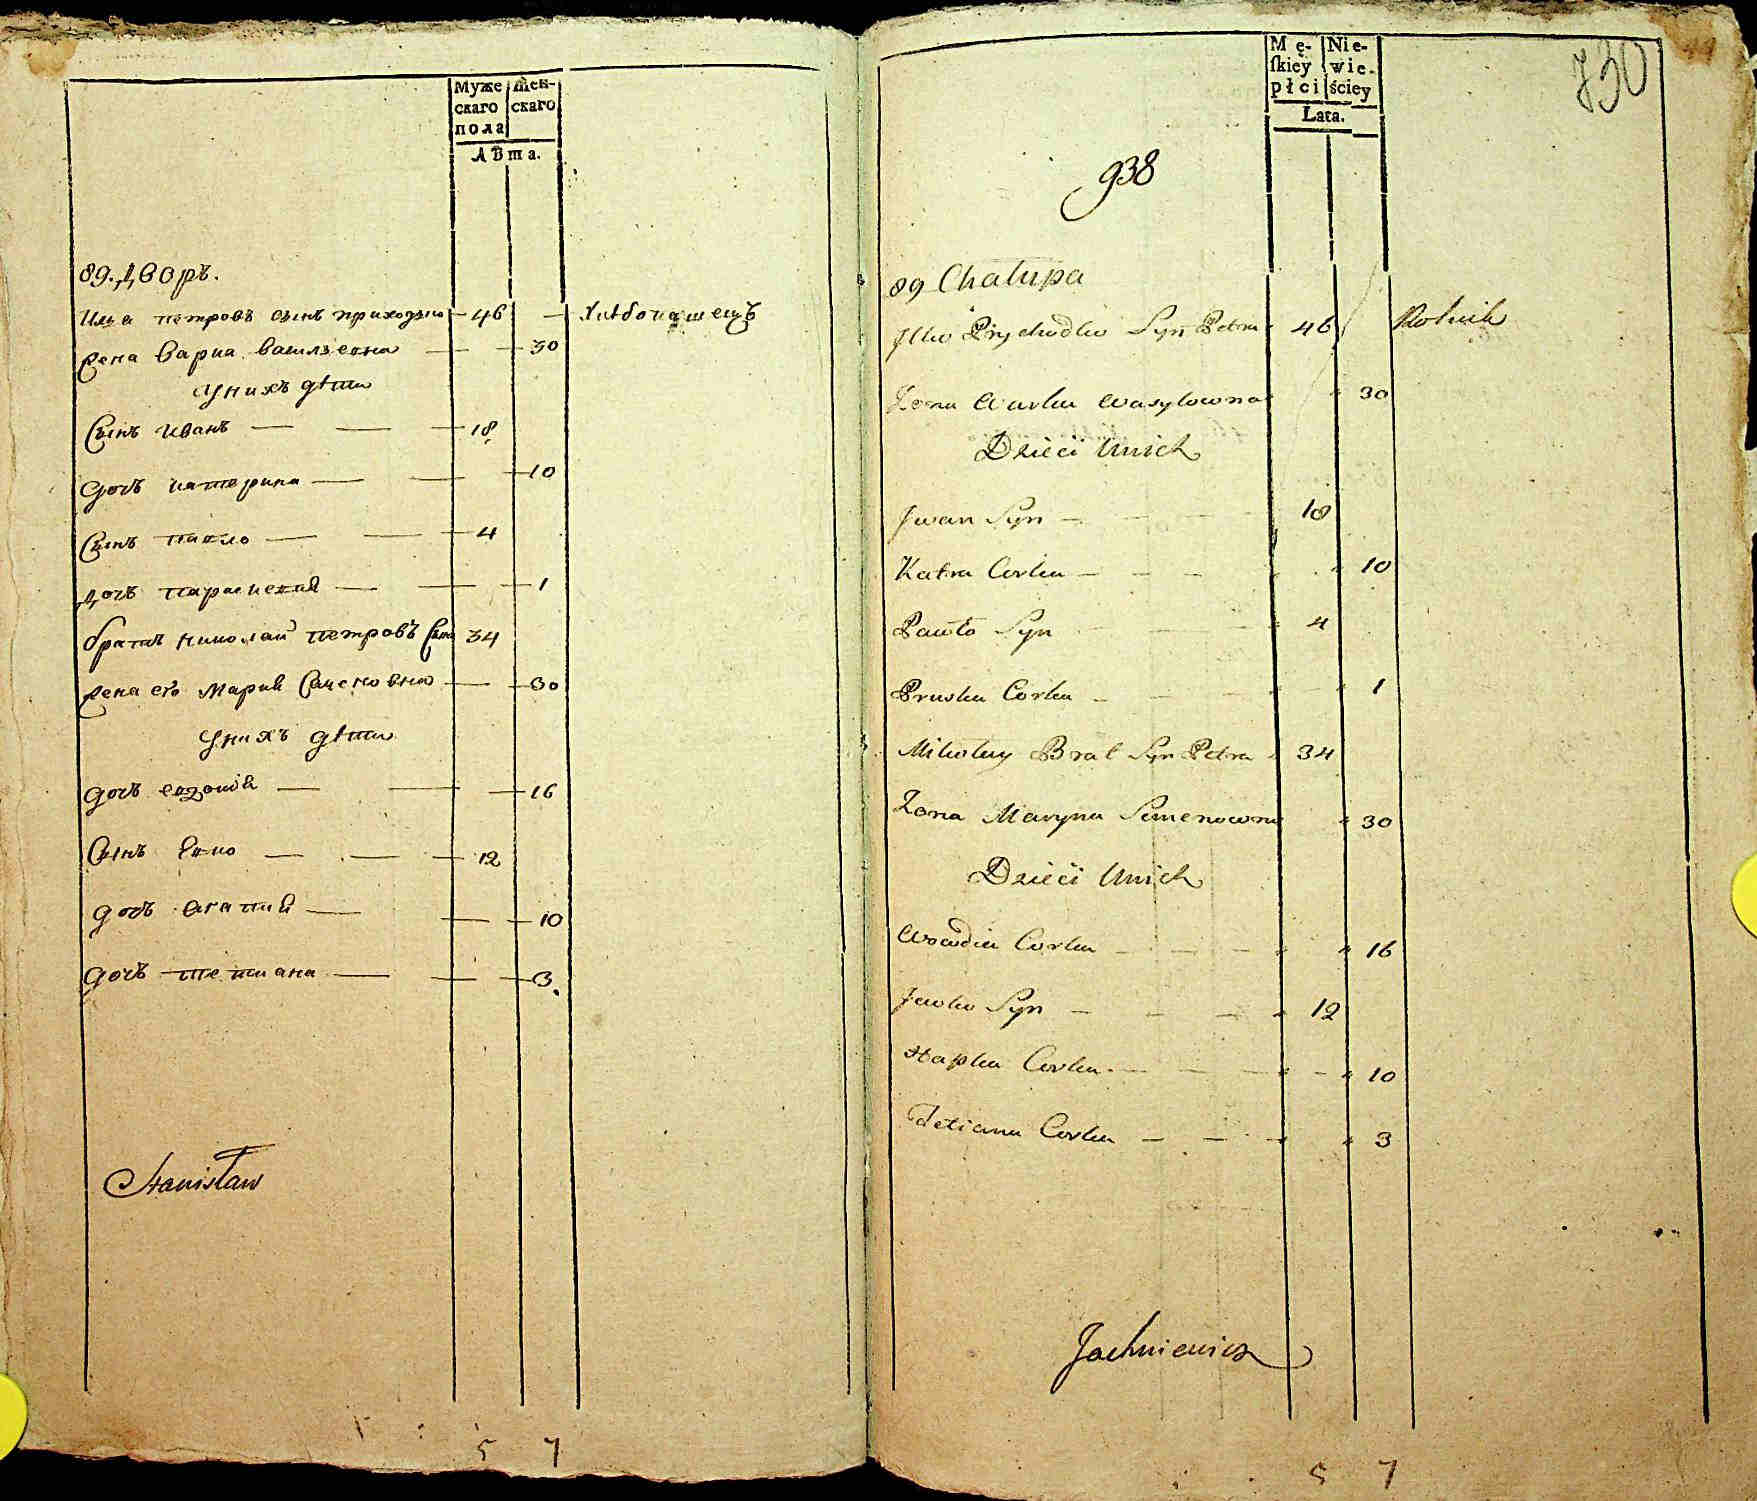 Муже скаго пола
Жен- скаго
Лѣта.
89. Дворъ.
Илья петровъ сынъ приходько — 46 — хлѣбопашецъ
жена варка василевна — — 30
У нихъ дѣти
Сынъ иванъ — — — 18
дочь катерина — — — 10
Сынъ павло — — — 4
дочь параскевия — — — 1
братъ николай петровъ Сынъ 34
жена его мария Семеновна — — 30
У нихъ дѣти
дочь евдокия — — — 16
Сынъ Явко — — — 12
дочь агапия — — — 10
дочь татиана — — — 3
Stanisław
5 7
Mę- skiey płci
Nie- wie- ściey
Lata.
730
938
89 Chałupa
Ilko Prychodko Syn Petra 46 Rolnik
Zona Warka Wasylowna 30
Dzieci Unich
Jwan Syn — 18
Katra Corka — 10
Pawło Syn 4
Pruska Corka — 1
Mikołay Brat Syn Petra 34
Zona Maryna Semenowna 30
Dzieci Unich
Wowdia Corka — 16
Jawko Syn — 12
Hapka Corka — 10
Tetiana Corka — 3
Jachniewicz
5 7